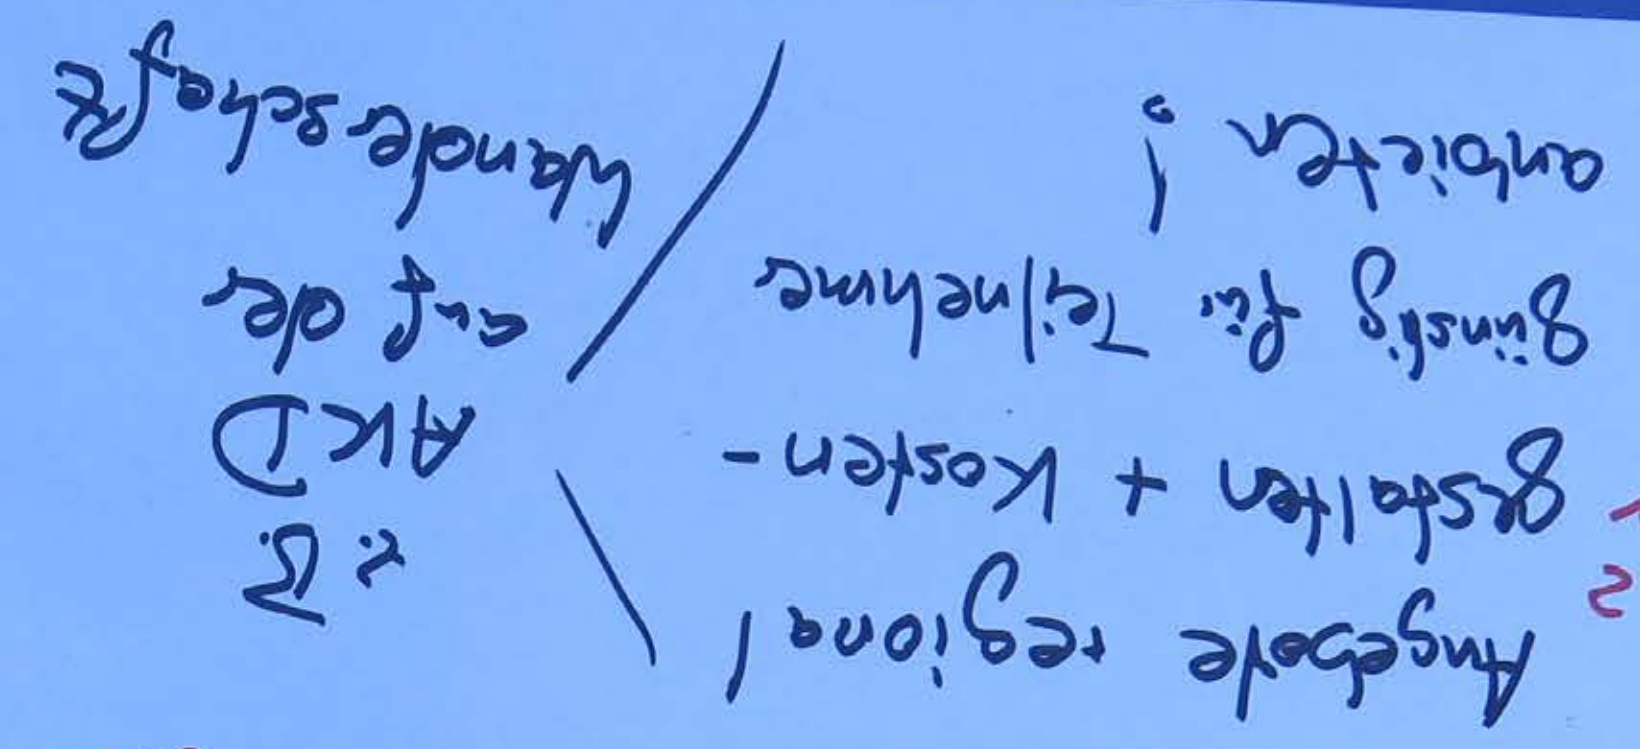 Angebote regional
gestalten + Kosten-
günstig für Teilnehmer
anbieten !
z.B.
AKD
auf der